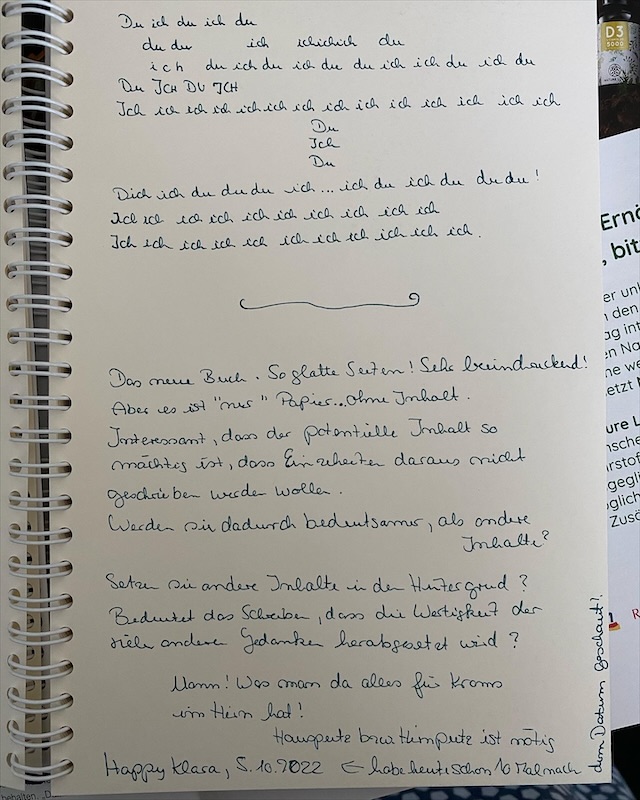 Du ich du ich du
du du ich ichichich du
ich du ich du ich du du ich ich du ich du
Du ICH DU ICH
Ich ich ich ich ich ich ich ich ich ich ich ich ich ich
Du
Ich
Du
Dich ich du du du ich... ich du ich du du du!
Ich ich ich ich ich ich ich ich ich ich
Ich ich ich ich ich ich ich ich ich ich ich.
Das neue Buch. So glatte Seiten! Sehr beeindruckend!
Aber es ist "nur" Papier... ohne Inhalt.
Interessant, dass der potentielle Inhalt so
mächtig ist, dass Einzeheiten daraus nicht
geschrieben werden wollen.
Werden sie dadurch bedeutsamer, als andere
Inhalte?
Setzen sie andere Inhalte in den Hintergrund?
Bedeutet das Schreiben, dass die Wertigkeit der
vielen anderen Gedanken herabgesetzt wird?
Mann! Was man da alles für Krams
im Hirn hat!
Hausputz bzw. Hirnputz ist nötig
Happy Klara, 5.10.2022 ← habe heute schon 10 Mal nach
dem Datum geschaut!
D3
5000
Ernä
, bit
er unl
n den
ag int
en Na
ne we
etzt
ure L
nsche
rstof
gegli
glich
Zusä
R
behalten. „D